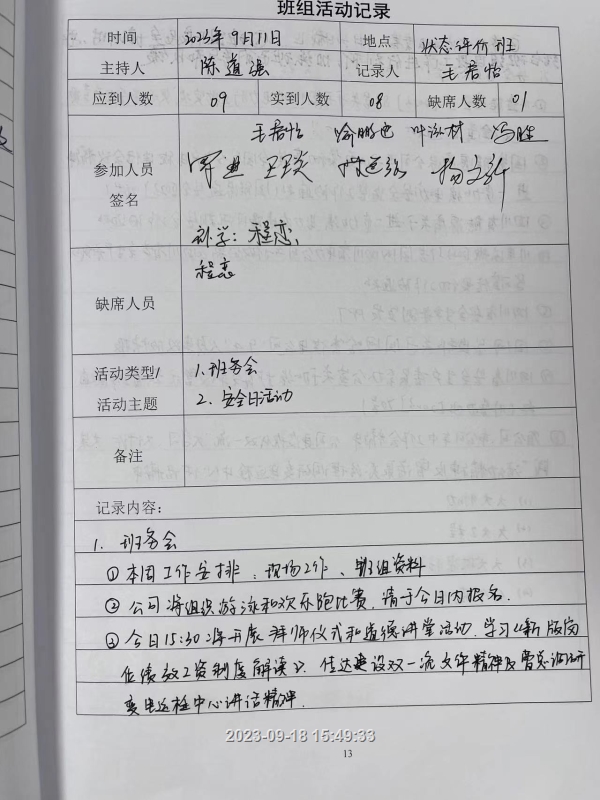 班组活动记录
时间 2023年9月11日 地点 状态评价班
主持人 陈道强 记录人 毛君怡
应到人数 09 实到人数 08 缺席人数 01
毛君怡
参加人员
签名
补学：程恋
缺席人员 程恋
活动类型/ 1.班务会
活动主题 2、安全日活动
备注
记录内容：
1. 班务会
①本周工作安排：现场工作、班组资料
②公司将组织游泳和欢乐跑比赛，请于今日内报名.
③今日15:30将开展拜师仪式和道德讲堂活动.学习《新版岗
位绩效工资制度解读》.传达建设双一流文件精神及曹总调研
变电运检中心讲话精神.
2023-09-18 15:49:33
13